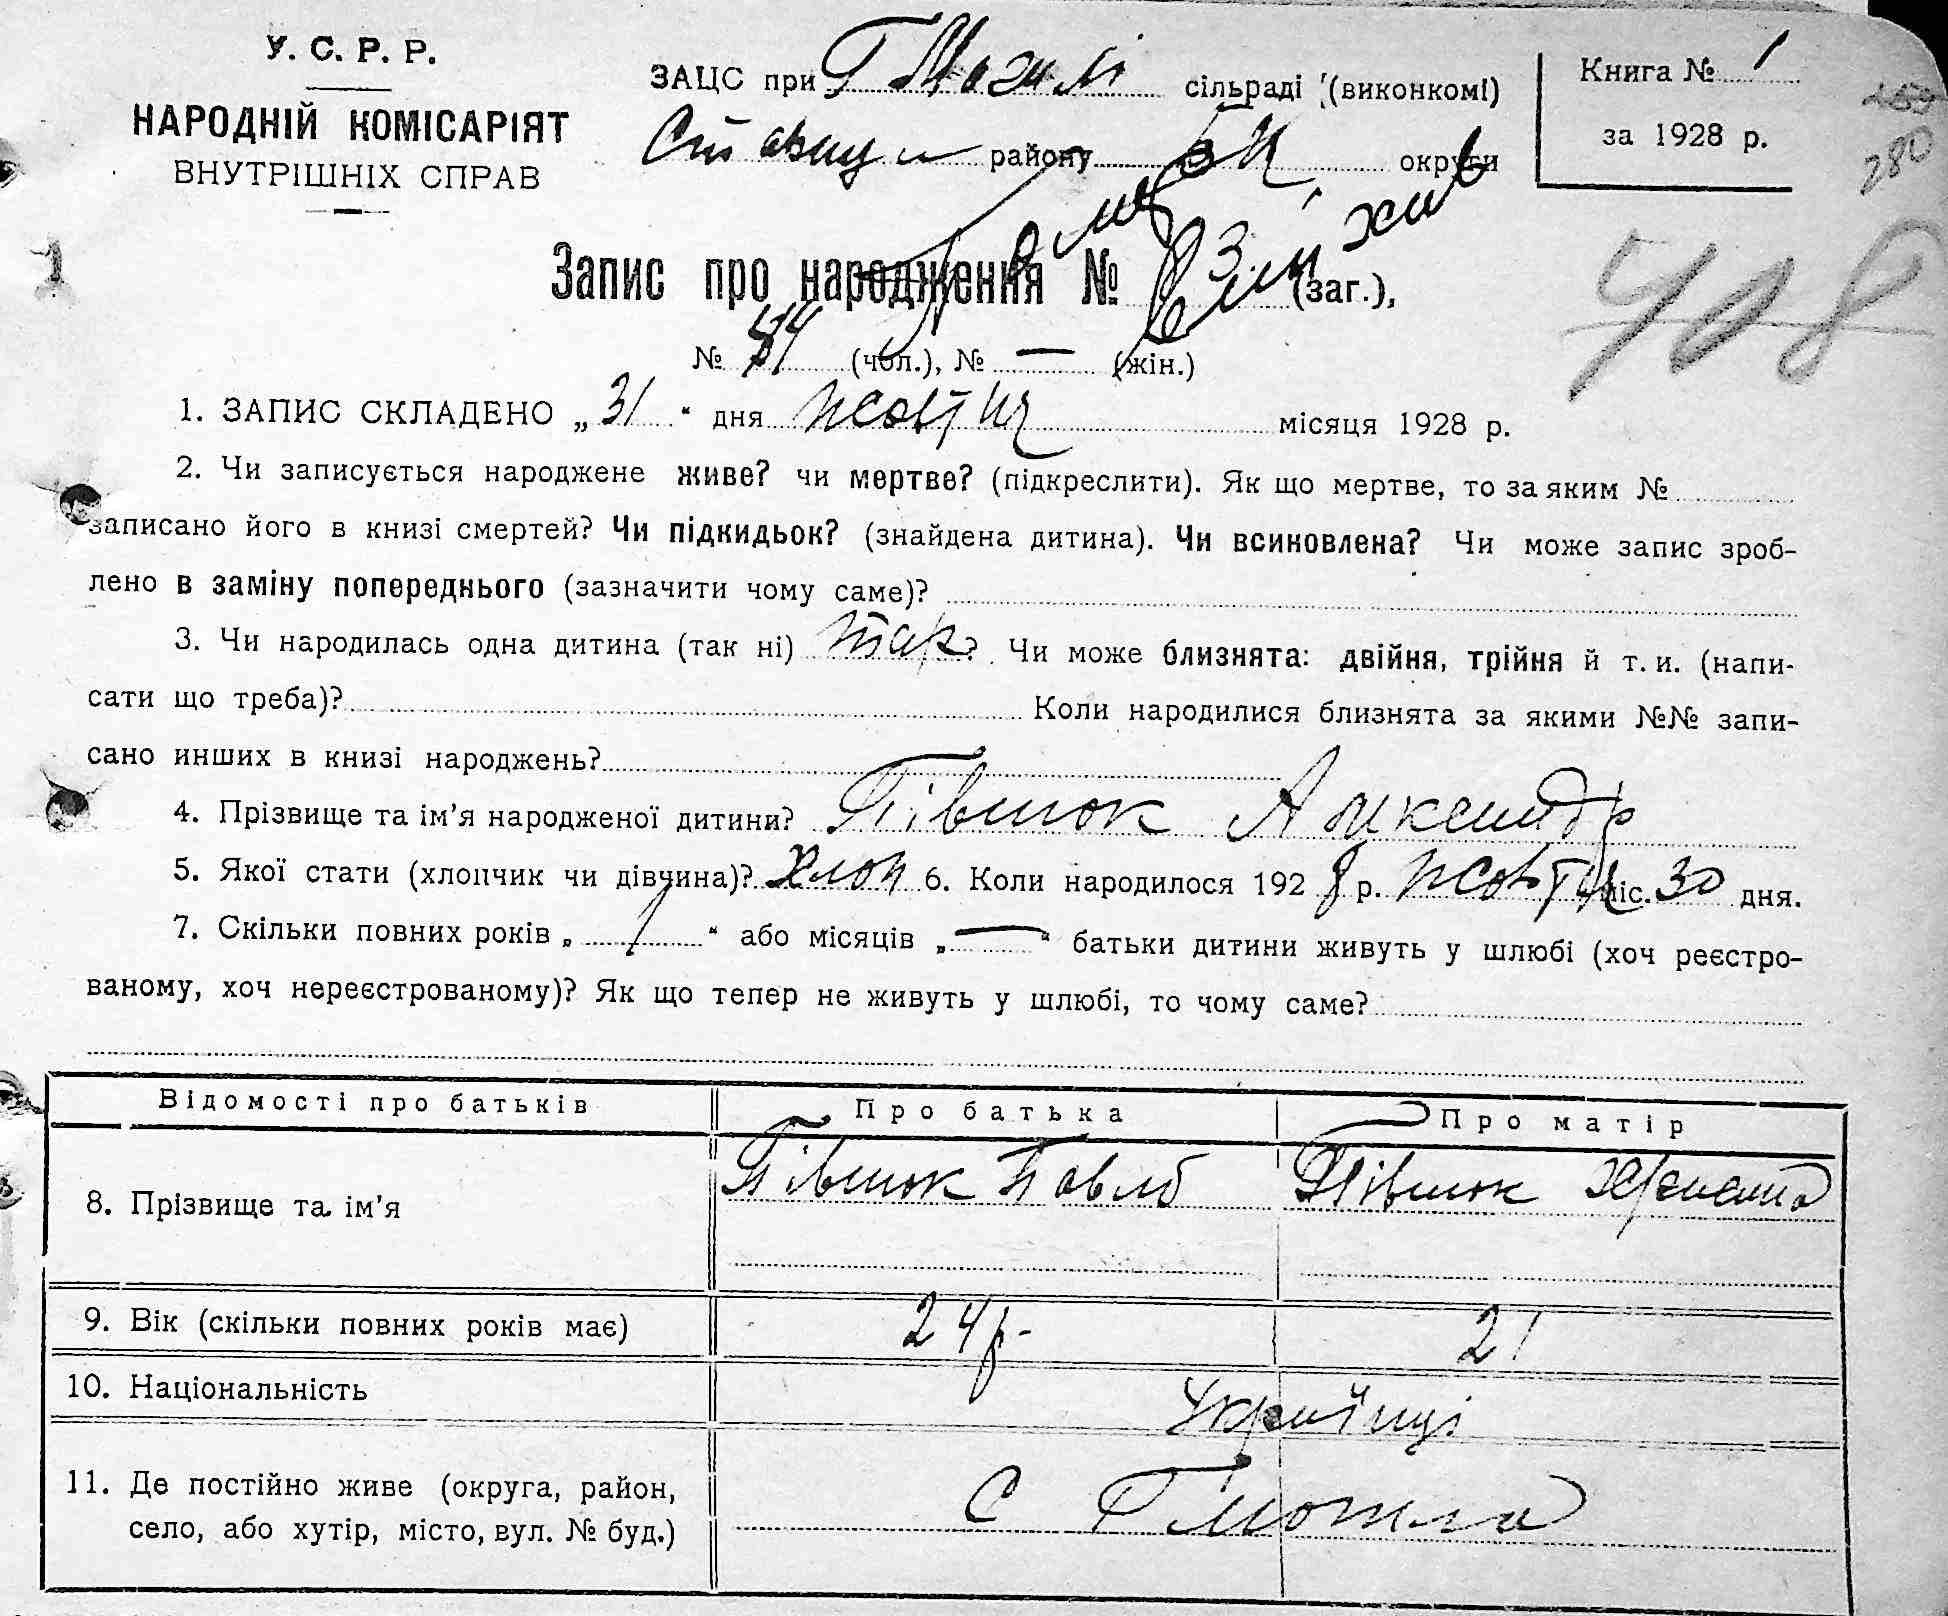 У. С. Р. Р.
НАРОДНІЙ КОМІСАРІЯТ
ВНУТРІШНІХ СПРАВ
ЗАЦС при Г Могилі сільраді (виконкомі)
району БЦ округи
Книга № 1
за 1928 р.
280
408
Запис про народження № (заг.),
№ (чол.), № — (жін.)
1. ЗАПИС СКЛАДЕНО „31“ дня жовтня місяця 1928 р.
2. Чи записується народжене живе? чи мертве? (підкреслити). Як що мертве, то за яким №
записано його в книзі смертей? Чи підкидьок? (знайдена дитина). Чи всиновлена? Чи може запис зроб-
лено в заміну попереднього (зазначити чому саме)?
3. Чи народилась одна дитина (так ні) так? Чи може близнята: двійня, трійня й т. и. (напи-
сати що треба)? Коли народилися близнята за якими №№ запи-
сано инших в книзі народжень?
4. Прізвище та ім’я народженої дитини? Півнюк Александр
5. Якої стати (хлопчик чи дівчина)? хлоп 6. Коли народилося 1928 р. жовтня міс. 30 дня.
7. Скільки повних років „1“ або місяців „—“ батьки дитини живуть у шлюбі (хоч реєстро-
ваному, хоч нереєстрованому)? Як що тепер не живуть у шлюбі, то чому саме?
Відомості про батьків Про батька Про матір
8. Прізвище та ім’я Півнюк Павло Півнюк
9. Вік (скільки повних років має) 24р- 21
10. Національність Українці
11. Де постійно живе (округа, район,
село, або хутір, місто, вул. № буд.) С Г Могила